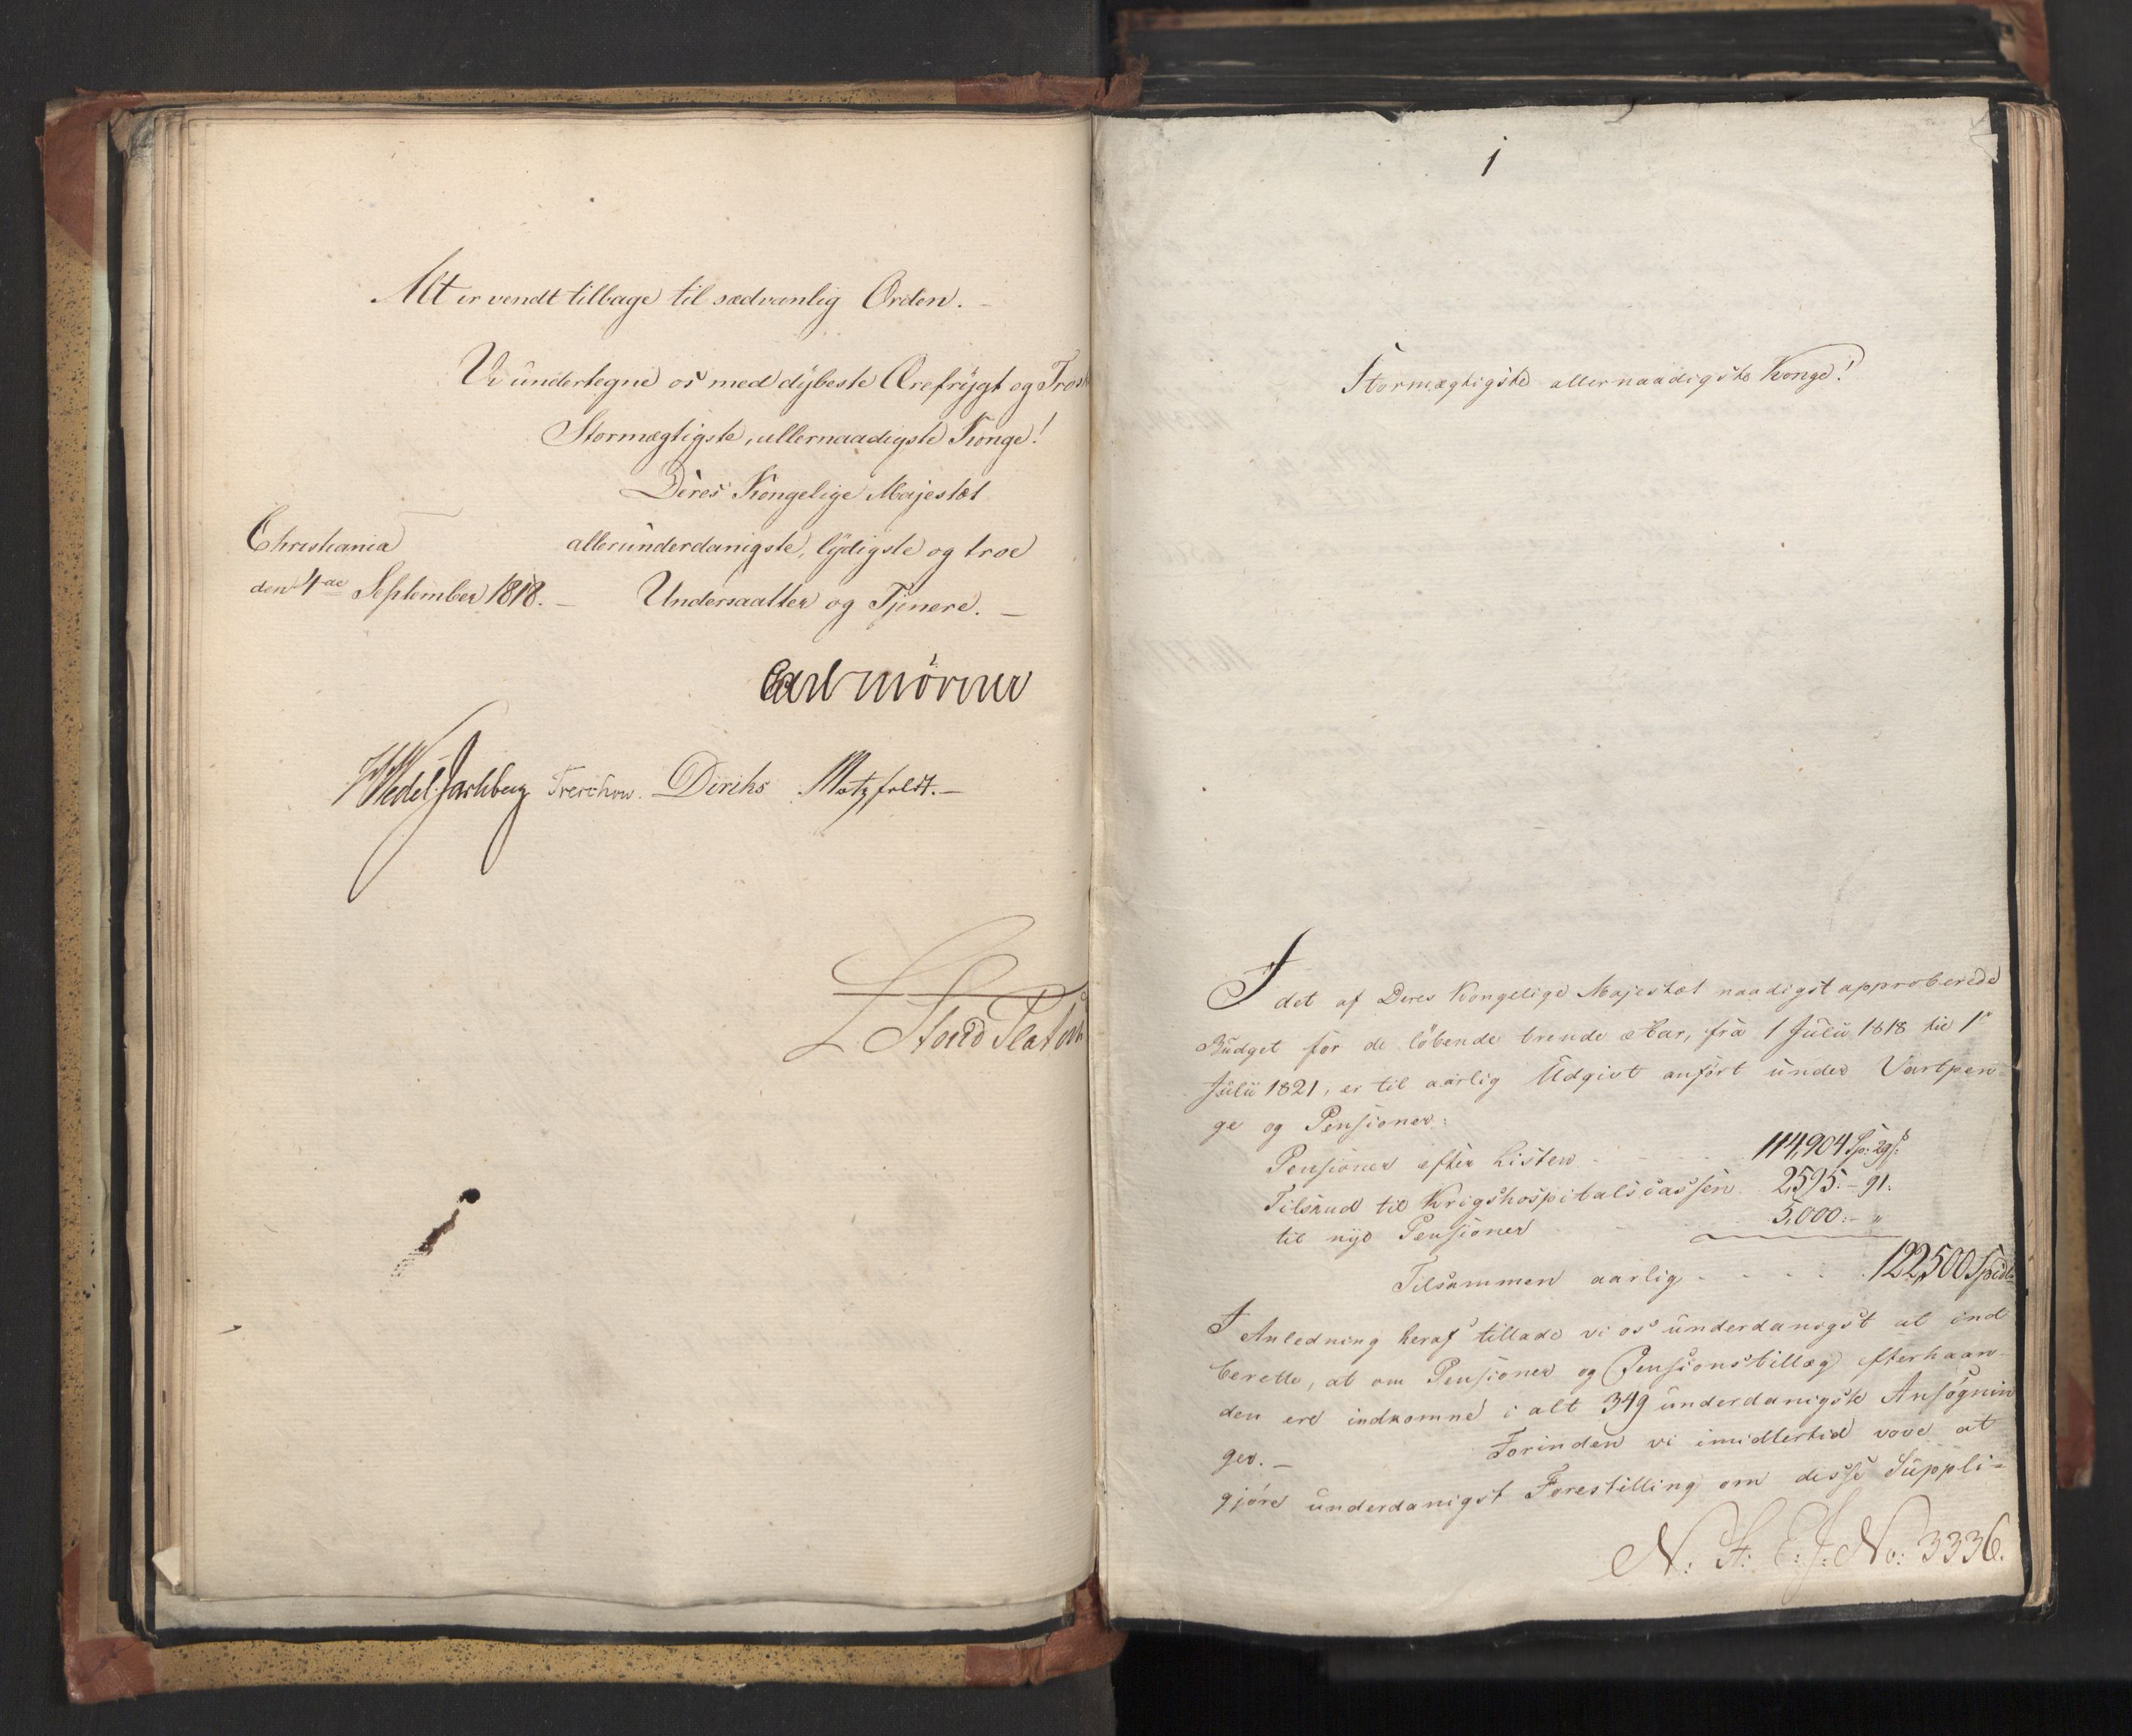 Alt er vendt tilbage til sædvanlig Orden. –
Vi undertegne os med dybeste Ærefrygt og
Stormægtigste, allernaadigste Konge!
Deres Kongelige Majestæt
Christiania allerunderdanigste, lydigste og troe
den 4de September 1818. – Undersaatter og Tjenere. –
Carl Mörner
Wedel Jarlsberg Treschow. Diriks Motzfeldt. –
1
Stormægtigste allernaadigste Konge!
I det af Deres Kongelige Majestæt naadigst approberede
Budget for de löbende trende Aar, fra 1 Julii 1818 til 1
Julii 1821, er til aarlig Udgivt anfört under Vartpen=
ge og Pensioner:
Pensioner efter Listen 114,904 Sp: 29 s:
Tilskud til Krigshospitalscassen 2,595. – 91.
til nye Pensioner 5,000: – "
Tilsammen aarlig . . . . 122,500 Spdlr
I Anledning heraf tillade vi os underdanigst at ind
berette, at om Pensioner og Pensionstillæg efterhaan-
den ere indkomne i alt 349 underdanigste Ansøgnin
ger. – Forinden vi imidlertid vove at
gjöre underdanigst Forestilling om disse Suppli=
N: F: E: J: No: 3336.